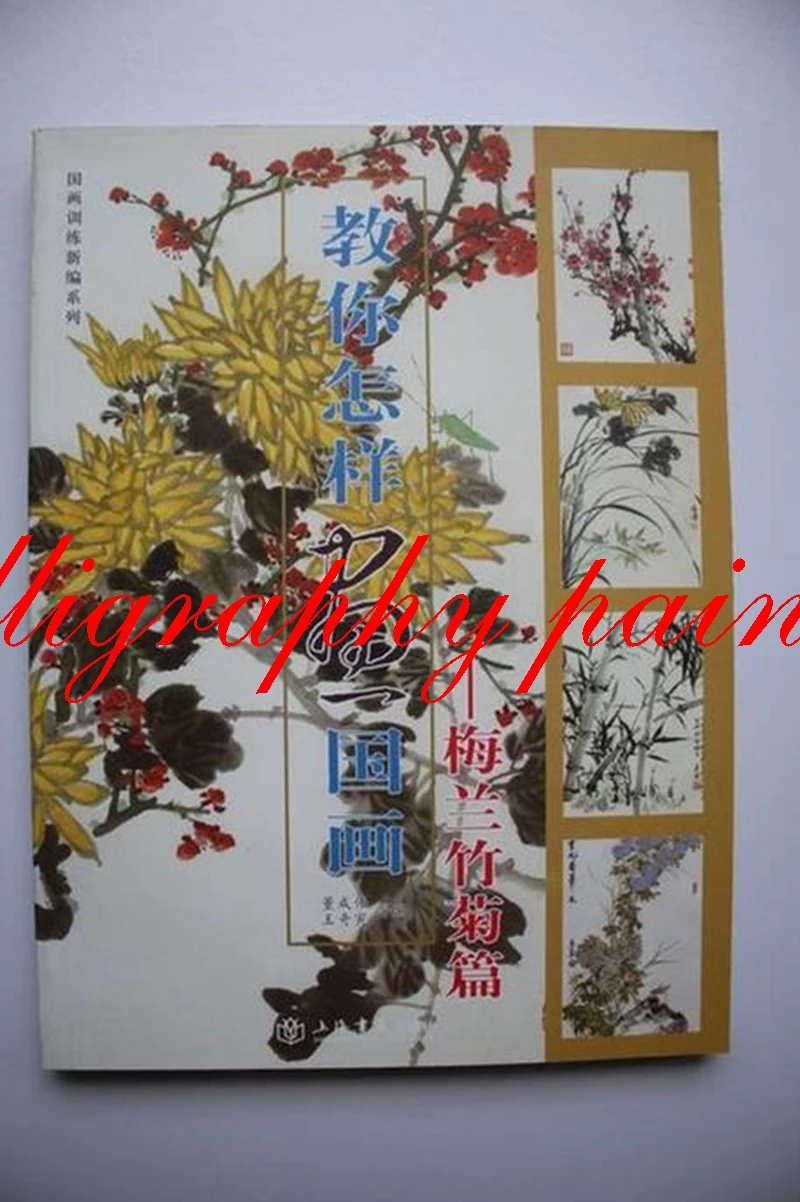 国画训练新编系列
教你怎样画国画
—梅兰竹菊篇
董成
王奇
上海书
lligraphy pain